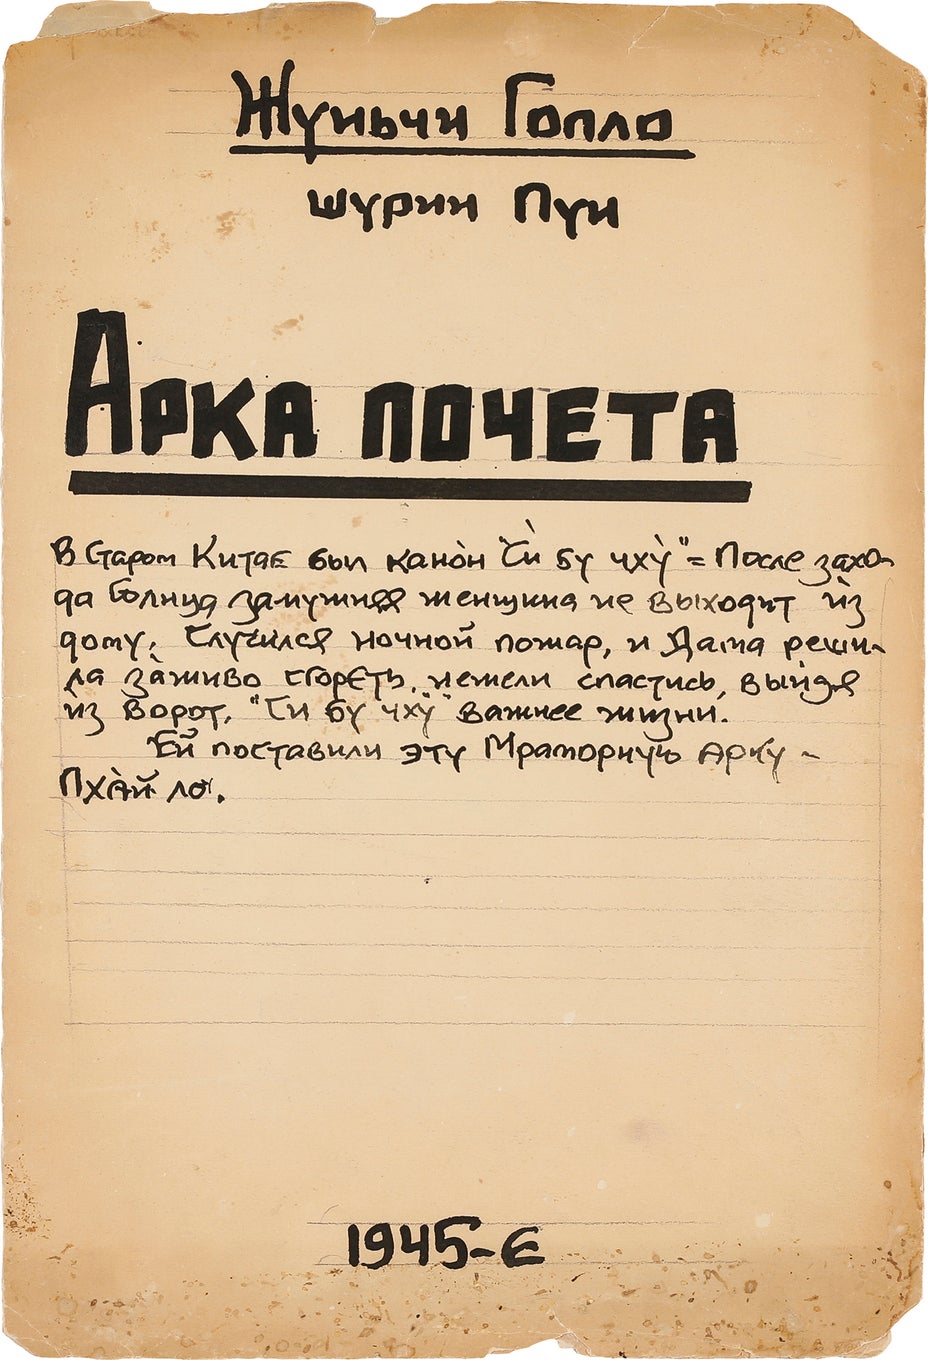 Жуньчи Гопло
шурин Пуи
Арка почета
В Старом Китае был канòн "Си̇̀ бу чхỳ" = После захо-
да Солнца замужняя женщина не выходит из
дому. Случился ночной пожар, и Дама реши-
ла зàживо сгореть, нежели спастись, выйдя
из ворот. "Си бу чхӱ" важнее жизни.
Ей поставили эту Мраморную Арку -
Пхàй ло̀.
1945-Е